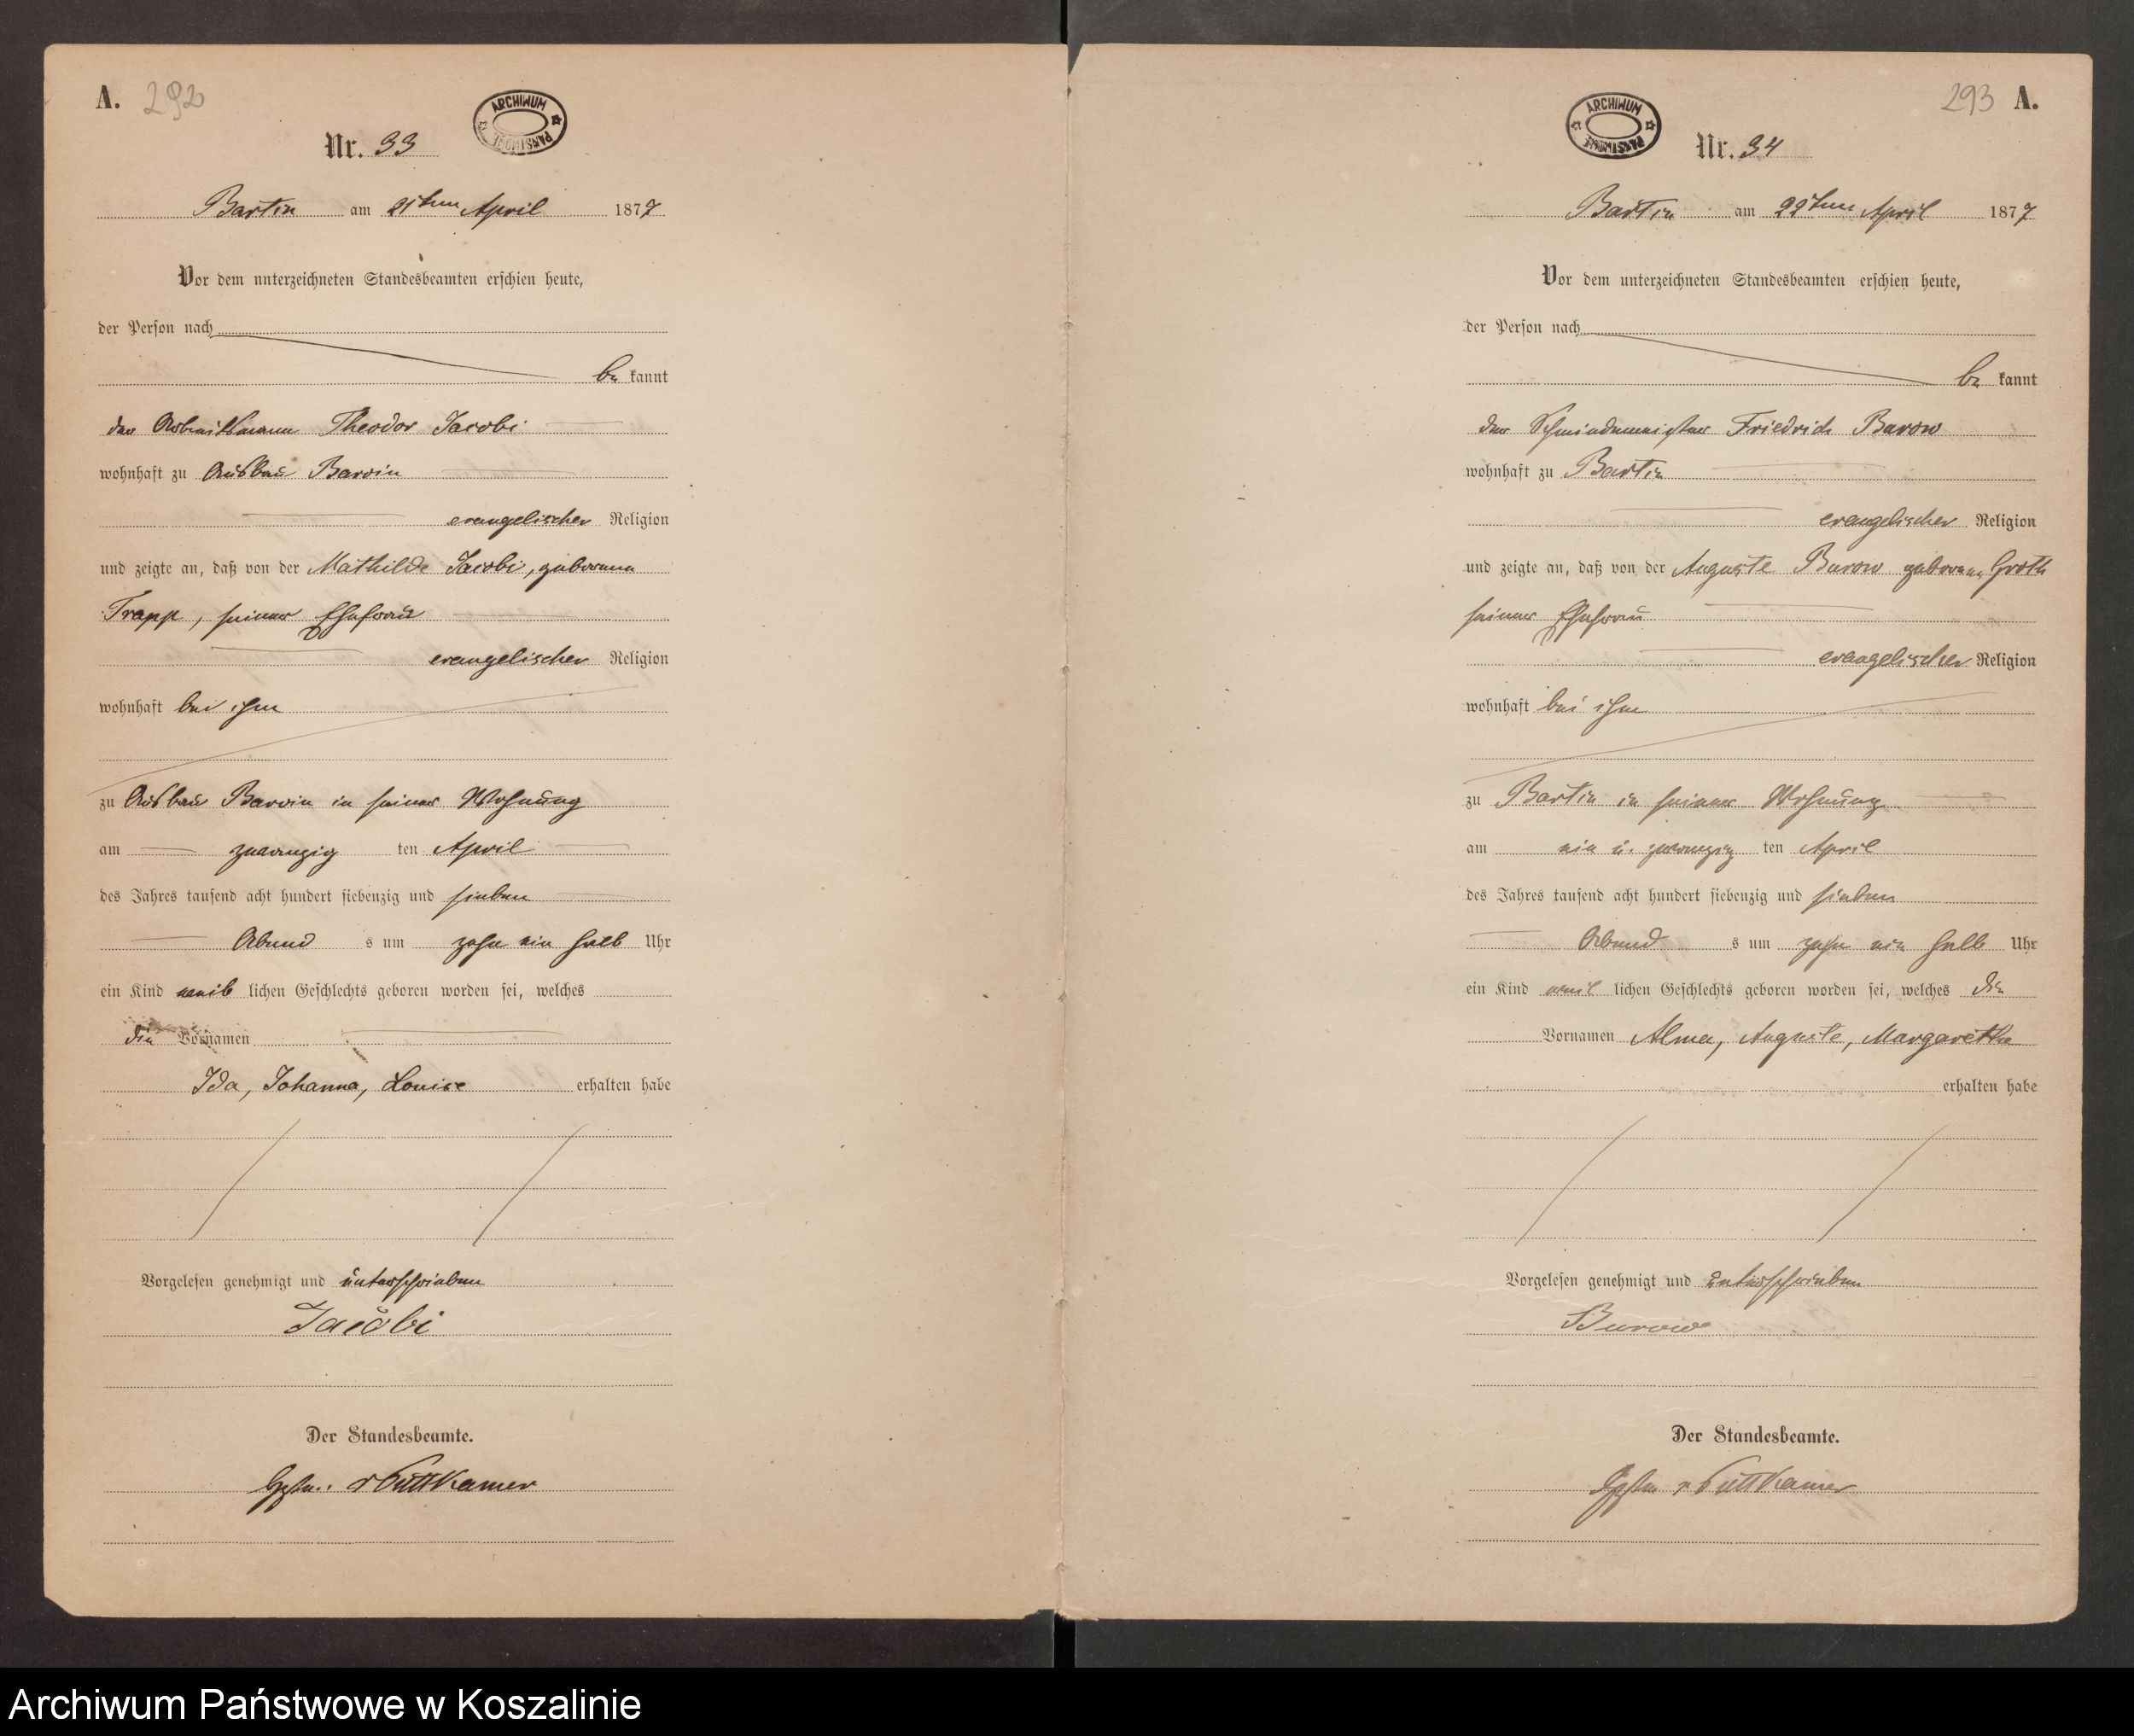 A. 292
ARCHIWUM PAŃSTWOWE
Nr. 33
Bartin am 21ten April 1877
Vor dem unterzeichneten Standesbeamten erschien heute,
der Person nach
be kannt
der Arbeitsmann Theodor Jacobi
wohnhaft zu Ausbau Barvin
evangelischer Religion
und zeigte an, daß von der Mathilde Jacobi, geborenen
Trapp, seiner Ehefrau
evangelischer Religion
wohnhaft bei ihm
zu Ausbau Barvin in seiner Wohnung
am zwanzig ten April
des Jahres tausend acht hundert siebenzig und sieben
Abend s um zehn ein halb Uhr
ein Kind weib lichen Geschlechts geboren worden sei, welches
die Vornamen
Ida, Johanna, Louise erhalten habe
Vorgelesen genehmigt und unterschrieben
Jacobi
Der Standesbeamte.
v Puttkamer
293 A.
ARCHIWUM PAŃSTWOWE
Nr. 34
Bartin am 22ten April 1877
Vor dem unterzeichneten Standesbeamten erschien heute,
der Person nach
be kannt
der Schmiedemeister Friedrich Burow
wohnhaft zu Bartin
evangelischer Religion
und zeigte an, daß von der Auguste Burow geborenen Groth
seiner Ehefrau
evangelischer Religion
wohnhaft bei ihm
zu Bartin in seiner Wohnung
am ein u. zwanzig ten April
des Jahres tausend acht hundert siebenzig und sieben
Abend s um zehn ein halb Uhr
ein Kind weib lichen Geschlechts geboren worden sei, welches die
Vornamen Alma, Auguste, Margarethe
erhalten habe
Vorgelesen genehmigt und unterschrieben
Burow
Der Standesbeamte.
v Puttkamer
Archiwum Państwowe w Koszalinie